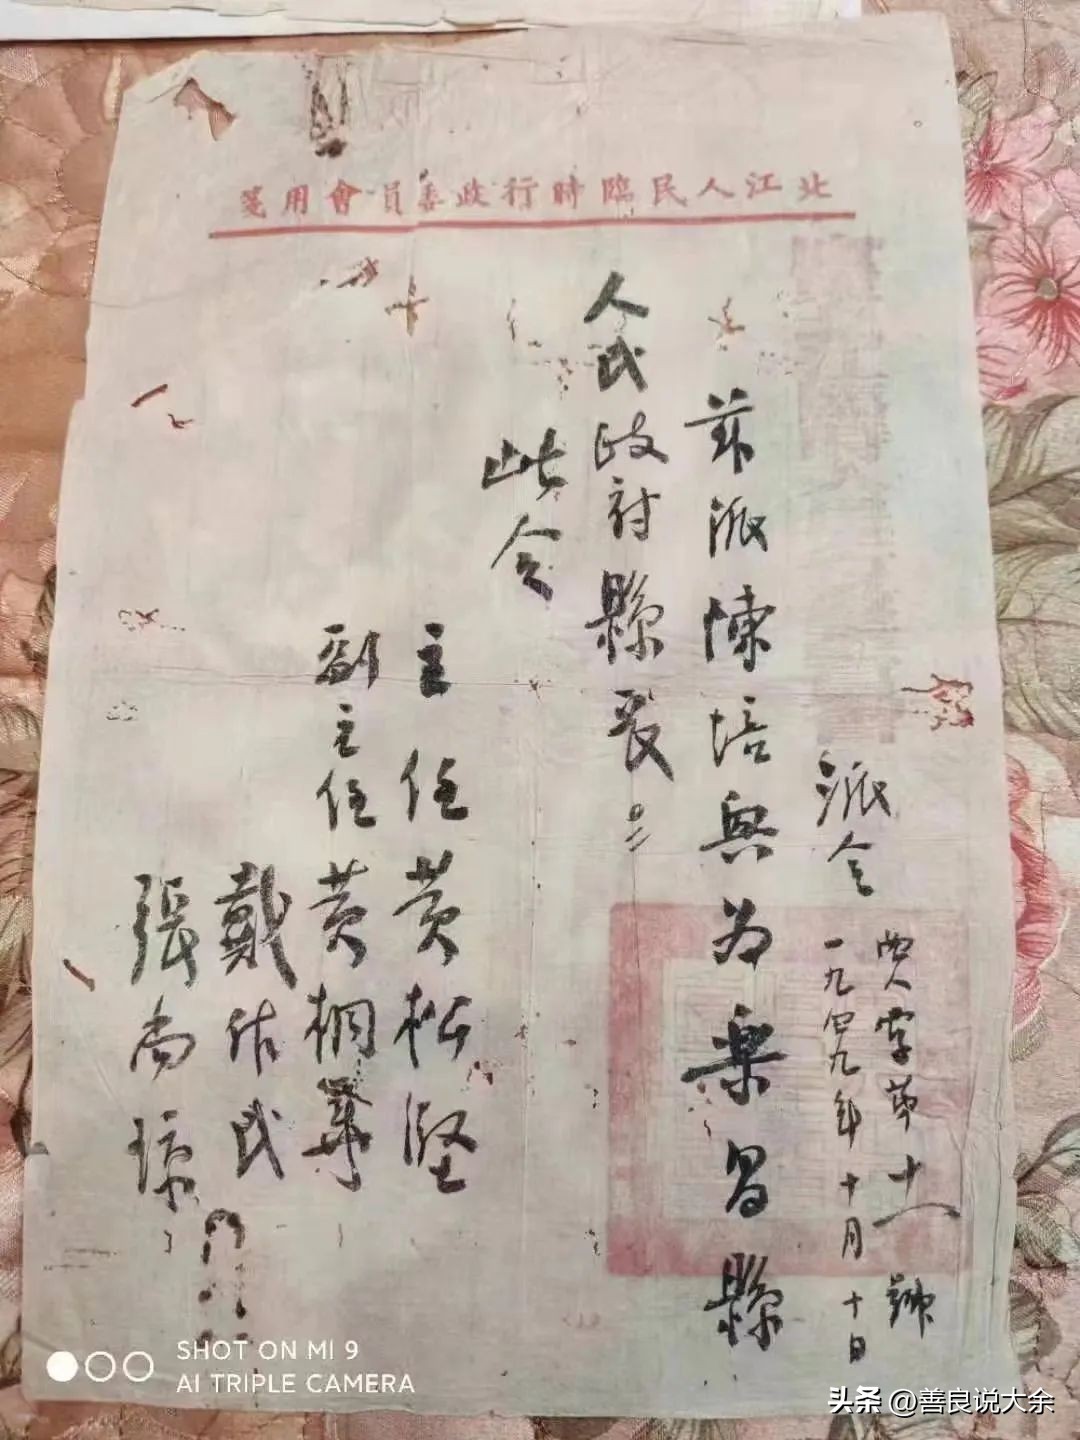 北江人民臨時行政委員會用箋
派令
字第號
一九四九年十月十日
茲派陳培興為楽昌縣
人民政府縣長。
此令
主任黄松堅
副主任黄桐華
戴作民
張尚琼
SHOT ON MI 9
AI TRIPLE CAMERA
头条 @善良说大余